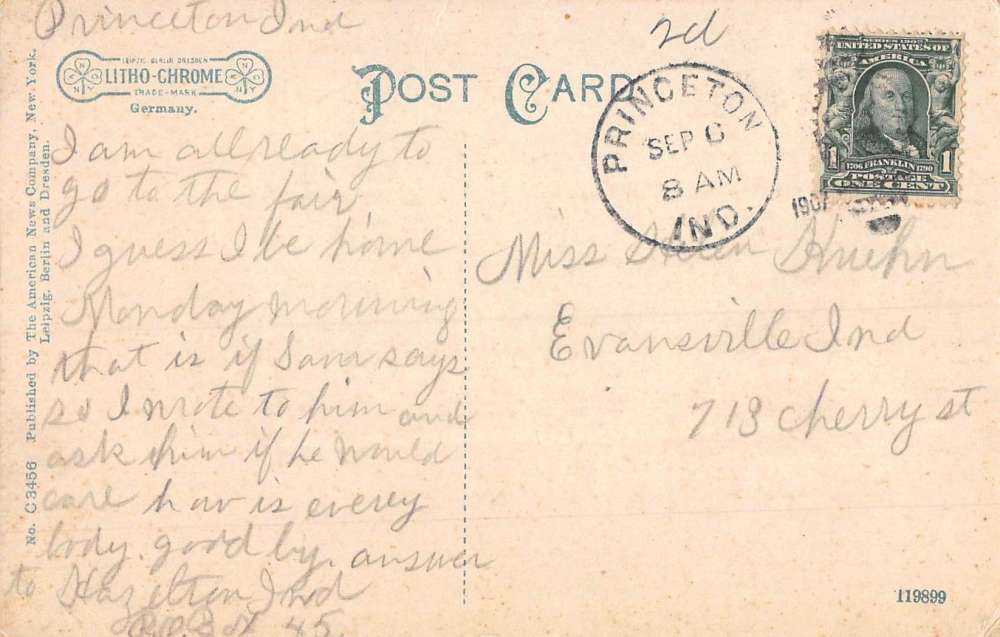 Princeton Ind
2d
LEIPZIG BERLIN DRESDEN
LITHO-CHROME
TRADE-MARK
N Y
N Y
Germany.
POST CARD
PRINCETON
SEP 6
8 AM
IND.
1907
SERIES 1902
UNITED STATES OF
AMERICA
1706 FRANKLIN 1790
1 POSTAGE 1
ONE CENT
No. C 3456 Published by The American News Company, New York.
Leipzig. Berlin and Dresden.
I am all ready to
go to the fair
I guess I be home
Monday morning
that is if Sam says
so I wrote to him and
ask him if he would
care how is everey
body. good by. answer
to Hazelton Ind
Box 45
Miss Helen Kuehn
Evansville Ind
713 cherry st
119899